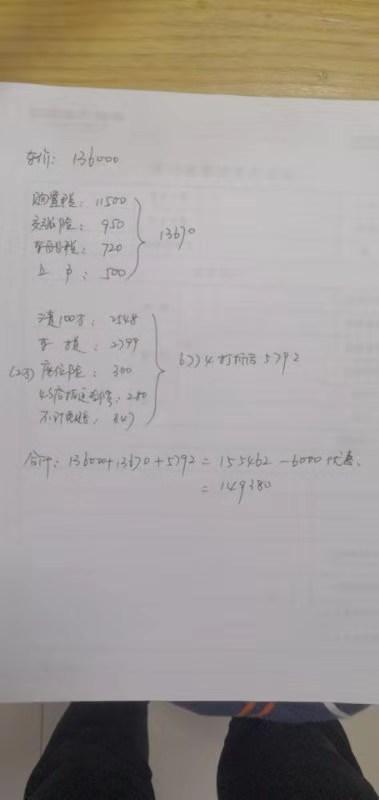 车价: 136000
购置税: 11500
交强险: 950
车船税: 720
上户: 500
13670
三责100万: 2548
车损: 2799
(2万) 座位险: 300
280
不计免赔: 847
6774 打折后 5792
合计: 136000+13670+5792 = 155462 - 6000优惠.
= 149380